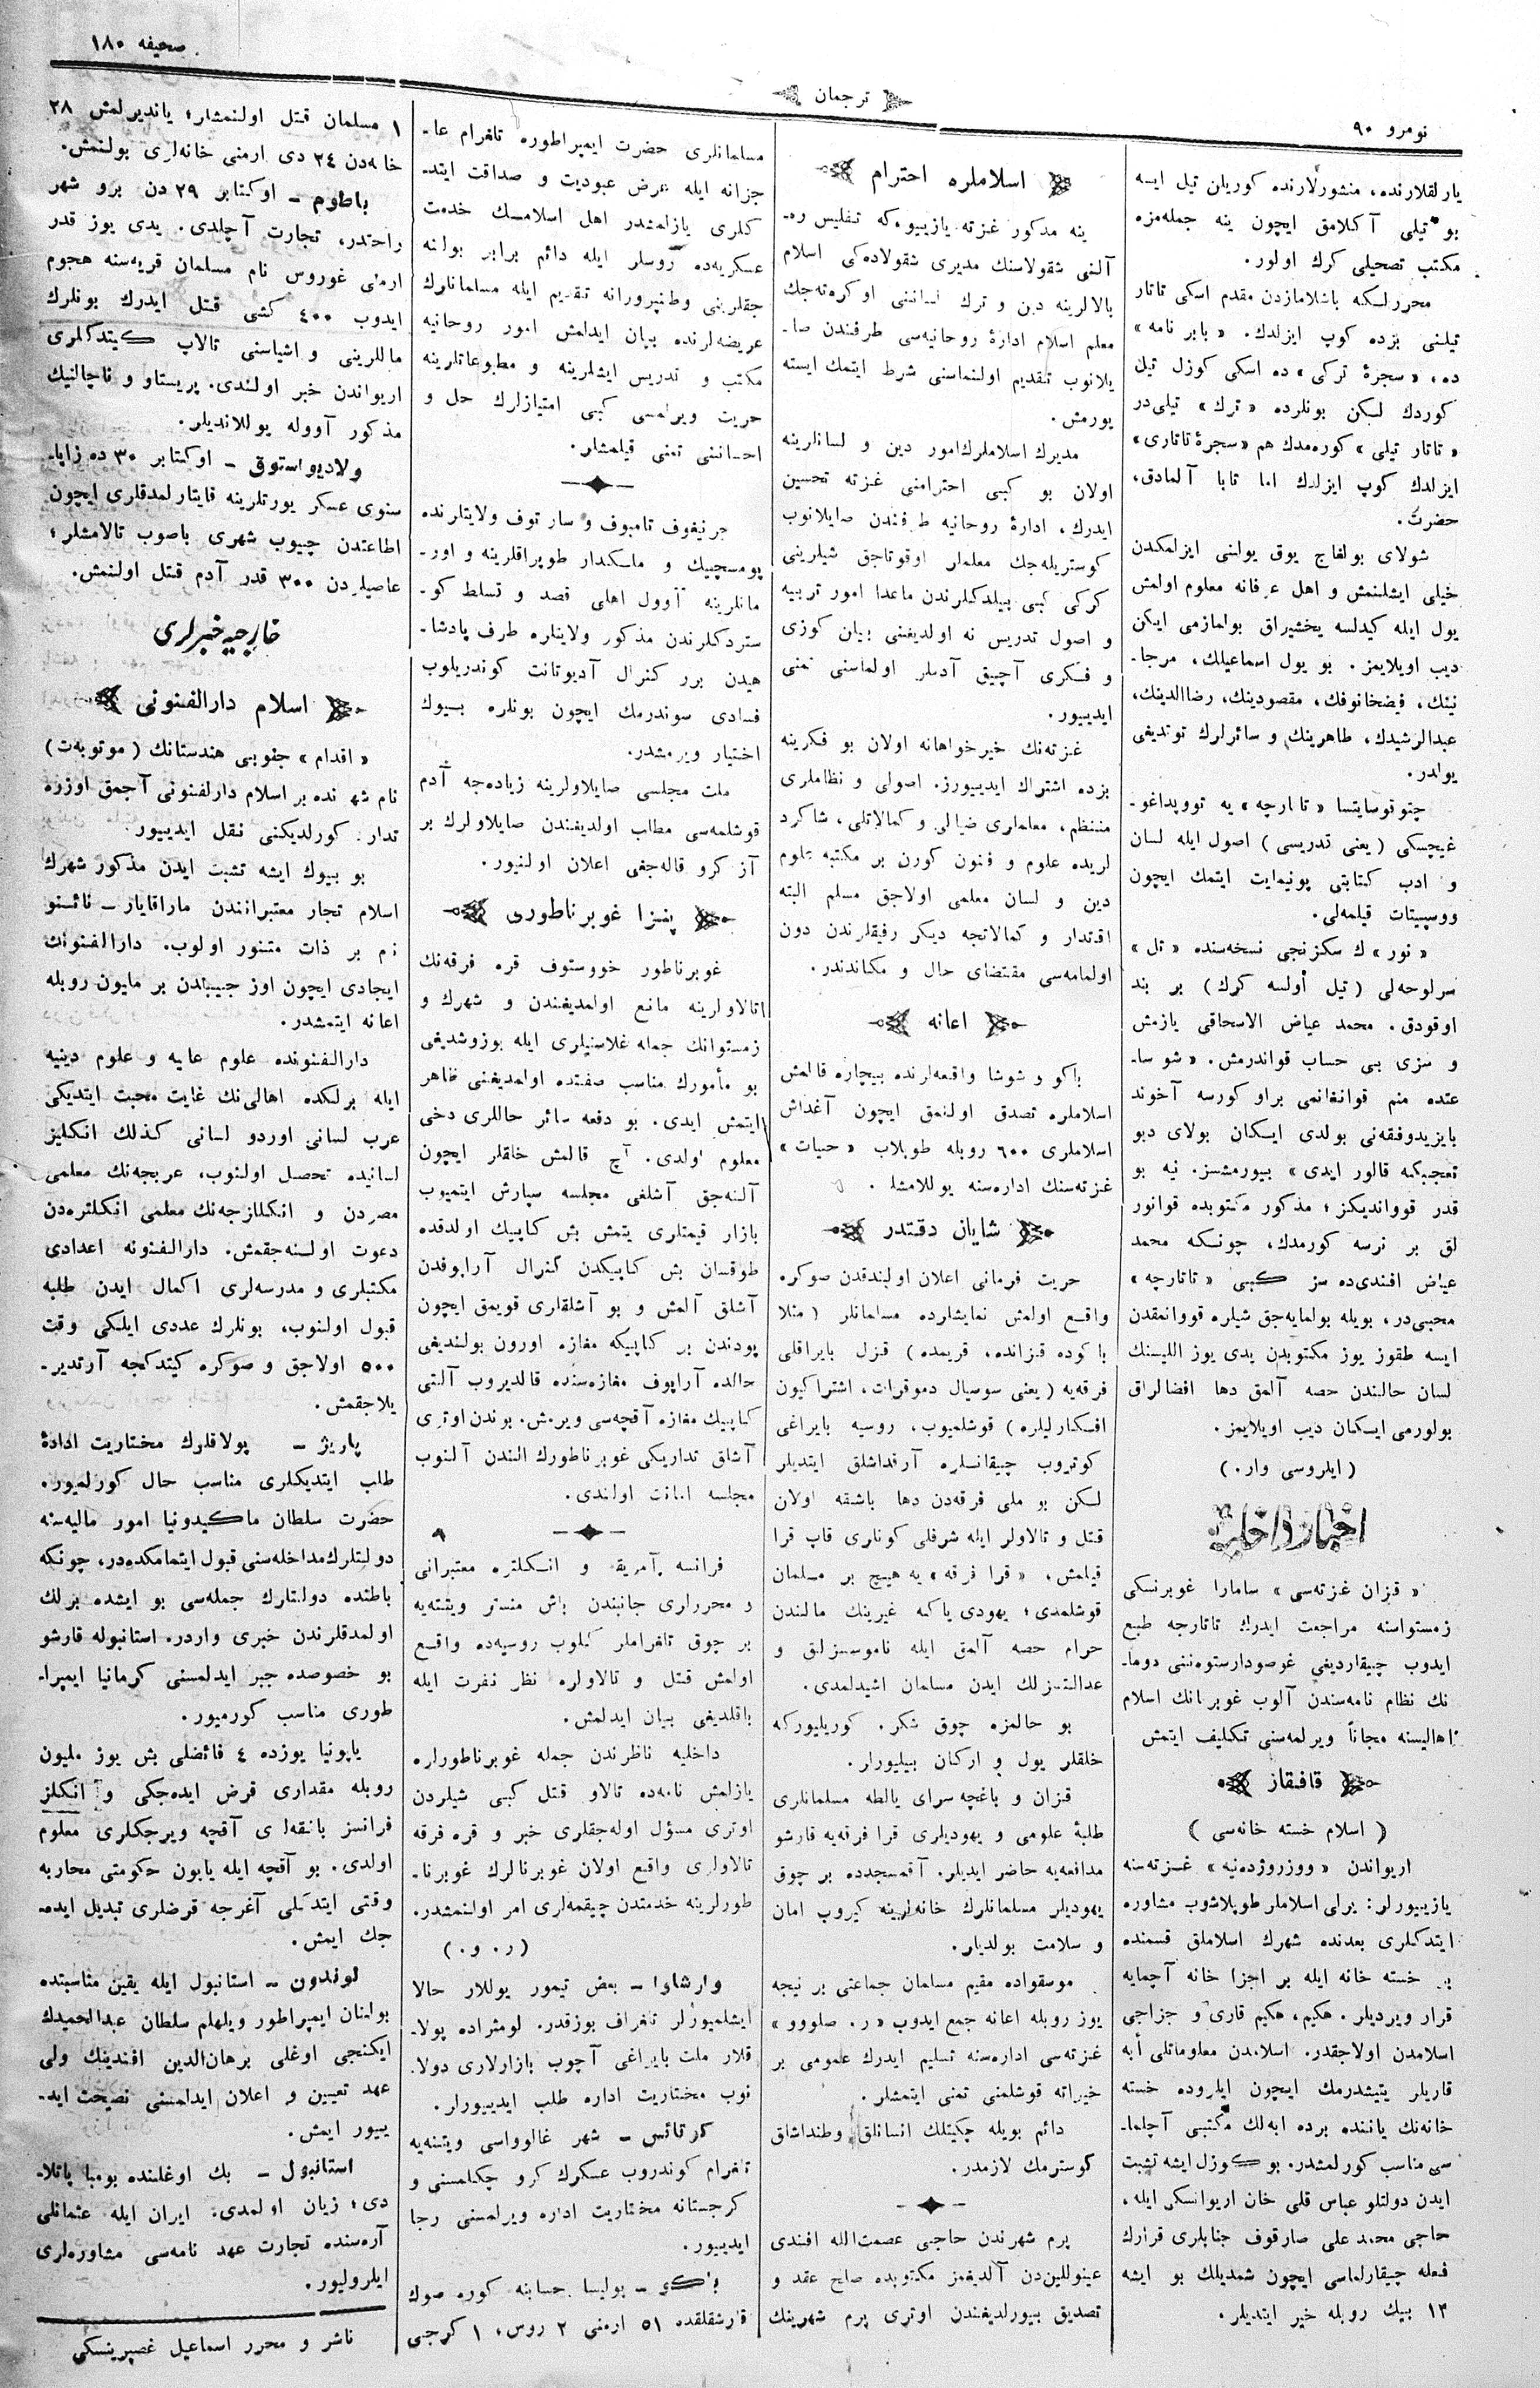 صحیفه ١٨٠
ترجمان
نومرو ٩٠
یارلقلارنده، منشورلارنده کوریلان تیل ایسه
بو تیلی آکلامق ایچون ینه جمله‌مزه
مکتب تصحیلی کرك اولور.
محررلکه باشلامازدن مقدم اسکی تاتار
تیلنی بزده کوپ ایزلدك. « بابر نامه »
ده، « سجرهٔ ترکی » ده اسکی کوزل تیل
کوردك لیکن بونلرده « ترك » تیلی‌در
« تاتار تیلی » کوره‌مدك هم « سجرهٔ تاتاری »
ایزلدك کوپ ایزلدك اما تابا آلمادق،
حضرت.
شولای بولغاچ یوق یولنی ایزلمکدن
خیلی ایشلنمش و اهل عرفانه معلوم اولمش
یول ایله کیدلسه یخشیراق بولمازمی ایکن
دیب اویلایمز. بو یول اسماعیلك، مرجا-
نینك، فیضخانوفك، مقصودینك، رضاالدینك،
عبدالرشیدك، طاهرینك و سائرلرك توتدیغی
یولدر.
چتوتوسایتسا « تاتارچه » یه توویداغو-
غیچسکی (یعنی تدریسی) اصول ایله لسان
و ادب کتابتی پونیمایت ایتمك ایچون
ووسپیتات قیلمه‌لی.
« نور » ك سکزنجی نسخه‌سنده « تل »
سرلوحه‌لی (تیل أولسه کرك) بر بند
اوقودق. محمد عیاض الاسحاقی یازمش
و سزی بی حساب قواندرمش. « شو سا-
عتده منم قوانغانمی براو کورسه آخوند
بایزیدوفقه‌نی بولدی ایکان بولای دیو
تعجبکه قالور ایدی » بیورمشسز. نیه بو
قدر قوواندیکز؛ مذکور مکتوبده قوانور
لق بر نرسه کورمدك، چونکه محمد
عیاض افندی‌ده سز کبی « تاتارچه »
محبی‌در، بویله بولمایه‌جق شیلره قووانمقدن
ایسه طقوز یوز مکتوبدن یدی یوز اللیسنك
لسان حالندن حصه آلمق دها افضالراق
بولورمی ایکان دیب اویلایمز.
(ایلروسی وار.)
اخبار داخلیه
« قزان غزته‌سی » سامارا غوبرنسکی
زمستواسنه مراجعت ایدرك تاتارجه طبع
ایدوب چیقاردیغی غوصودارستوه‌ننی دوما-
نك نظام نامه‌سندن آلوب غوبرنانك اسلام
اهالیسنه مجاناً ویرلمه‌سنی تکلیف ایتمش
قافقاز
(اسلام خسته خانه‌سی)
اریواندن « ووزروژده‌نیه » غزته‌سنه
یازیییورلر: یرلی اسلاملر طوپلاشوب مشاوره
ایتدکلری بعدنده شهرك اسلاملق قسمنده
بر خسته خانه ایله بر اجزا خانه آچمایه
قرار ویردیلر. هکیم، هکیم قاری و جزاجی
اسلامدن اولاجقدر. اسلامدن معلوماتلی أبه
قاریلر یتیشدرمك ایچون ایلروده خسته
خانه‌نك یاننده برده ابه‌لك مکتبی آچلما-
سی مناسب کورلمشدر. بو کوزل ایشه تشبث
ایدن دولتلو عباس قلی خان اریوانسکی ایله،
حاجی محمد علی صارقوف جنابلری قرارك
فعله چیقارلماسی ایچون شمدیلك بو ایشه
١٣ بیك روبله خیر ایتدیلر.
اسلاملره احترام
ینه مذکور غزته یازیییور، که تفلیس ره-
آلنی شقولاسنك مدیری شقولاده‌کی اسلام
بالالرینه دین و ترك لساننی اوکره‌ته‌جك
معلم اسلام ادارهٔ روحانیه‌سی طرفندن صا-
یلانوب تقدیم اولنماسنی شرط ایتمك ایسته
یورمش.
مدیرك اسلاملرك امور دین و لسانلرینه
اولان بو کبی احترامنی غزته تحسین
ایدرك، ادارهٔ روحانیه طرفندن صایلانوب
کوستریله‌جك معلملر اوقوتاجق شیلرینی
کرکی کبی بیلدکلرندن ماعدا امور تربیه
و اصول تدریس نه اولدیغنی بیان کوزی
و فکری آچیق آدملر اولماسنی تمنی
ایدییور.
غزته‌نك خیرخواهانه اولان بو فکرینه
بزده اشتراك ایدییورز. اصولی و نظاملری
منتظم، معلملری ضیالی و کمالاتلی، شاکرد
لریده علوم و فنون کورن بر مکتبه علوم
دین و لسان معلمی اولاجق مسلم البته
اقتدار و کمالاتجه دیکر رفیقلرندن دون
اولمامه‌سی مقتضای حال و مکاندندر.
اعانه
باکو و شوشا واقعه‌لرنده بیچاره قالمش
اسلاملره تصدق اولنمق ایچون آغداش
اسلاملری ٦٠٠ روبله طوپلاب « حیات »
غزته‌سنك اداره‌سنه یوللامشلر.
شایان دقتدر
حریت فرمانی اعلان اولندقدن صوکره
واقع اولمش نمایشلرده مسلمانلر (مثلا
باکوده، قزانده، قریمده) قزل بایراقلی
فرقه‌یه (یعنی سوسیال دموقرات، اشتراکیون
افکارلیلره) قوشلمیوب، روسیه بایراغی
کوتروب چیقانلره آرقداشلق ایتدیلر
لکن بو ملی فرقه‌دن دها باشقه اولان
قتل و تالاولر ایله شرفلی کونلری قاپ قرا
قیلمش، « قرا فرقه » یه هیچ بر مسلمان
قوشلمدی؛ یهودی یاکه غیرینك مالندن
حرام حصه آلمق ایله ناموسسزلق و
عدالتسزلك ایدن مسلمان اشیدلمدی.
بو حالمزه چوق شکر. کوریلیورکه
خلقلر یول و ارکان بیلیورلر.
قزان و باغچه سرای یالطه مسلمانلری
طلبهٔ علومی و یهودیلری قرا فرقه‌یه قارشو
مدافعه‌یه حاضر ایدیلر. آقمسجدده بر چوق
یهودیلر مسلمانلرك خانه‌لرینه کیروب امان
و سلامت بولدیلر.
موسقواده مقیم مسلمان جماعتی بر نیجه
یوز روبله اعانه جمع ایدوب « ر. صلووو »
غزته‌سی اداره‌سنه تسلیم ایدرك عمومی بر
خیراته قوشلمنی تمنی ایتمشلر.
دائم بویله چکیتلك انسانلق وطنداشلق
کوسترمك لازمدر.
پرم شهرندن حاجی عصمت‌الله افندی
عینوللین‌دن آلدیغمز مکتوبده صلح عقد و
تصدیق بیورلدیغندن اوتری پرم شهرینك
مسلمانلری حضرت ایمپراطوره تلغرام عا-
جزانه ایله عرض عبودیت و صداقت ایتد-
کلری یازلمشدر اهل اسلامك خدمت
عسکریه‌ده روسلر ایله دائم برابر بولنه
جقلرینی وطنپرورانه تقدیم ایله مسلمانلرك
عریضه‌لرنده بیان ایدلمش امور روحانیه
مکتب و تدریس ایشلرینه و مطبوعاتلرینه
حریت ویرلمسی کبی امتیازلرك حل و
احساننی تمنی قیلمشلر.
چرنیغوف تامبوف و سارتوف ولایتلرنده
پومسچیك و ملسکدار طوپراقلرینه و اور-
مانلرینه آوول اهلی قصد و تسلط کو-
ستردکلرندن مذکور ولایتلره طرف پادشا-
هیدن برر کنرال آدیوتانت کوندریلوب
فسادی سوندرمك ایچون بونلره بیوك
اختیار ویرمشدر.
ملت مجلسی صایلاولرینه زیاده‌جه آدم
قوشلمه‌سی مطلب اولدیغندن صایلاولرك بر
آز کرو قاله‌جغی اعلان اولنیور.
پنزا غوبرناطوری
غوبرناطور خووستوف قره فرقه‌نك
تالاولرینه مانع اولمدیغندن و شهرك و
زمستوانك جمله غلاسنیلری ایله بوزوشدیغی
بو مأمورك مناسب صفتده اولمدیغنی ظاهر
ایتمش ایدی. بو دفعه سائر حاللری دخی
معلوم اولدی. آچ قالمش خلقلر ایچون
آلنه‌جق آشلغی مجلسه سپارش ایتمیوب
بازار قیمتلری یتمش بش کاپیك اولدقده
طوقسان بش کاپیکدن گنرال آراپوفدن
آشلق آلمش و بو آشلقلری قویمق ایچون
پودندن بر کاپیکه مغازه اورون بولندیغی
حالده آراپوف مغازه‌سنده قالدیروب آلتی
کاپیك مغازه آقچه‌سی ویرمش. بوندن اوتری
آشلق تدارکی غوبرناطورك النندن آلنوب
مجلسه امانت اولندی.
فرانسه آمریقه و انکلتره معتبرانی
و محررلری جانبندن باش منستر ویتته‌یه
بر چوق تلغراملر کلوب روسیه‌ده واقع
اولمش قتل و تالاولره نظر نفرت ایله
باقلدیغی بیان ایدلمش.
داخلیه ناظرندن جمله غوبرناطورلره
یازلمش نامه‌ده تالاو قتل کبی شیلردن
اوتری مسؤل اوله‌جقلری خبر و قره فرقه
تالاولری واقع اولان غوبرنالرك غوبرنا-
طورلرینه خدمتدن چیقمه‌لری امر اولنمشدر.
(ر. و.)
وارشاوا – بعض تیمور یوللار حالا
ایشلمیورلر تلغراف بوزقدر. لومژاده پولا-
قلار ملت بایراغی آچوب بازارلاری دولا-
نوب مختاریت اداره طلب ایدییورلر.
کرتائس – شهر غالوواسی ویتته‌یه
تلغرام کوندروب عسکرك کرو چکلمسنی و
کرجستانه مختاریت اداره ویرلمسنی رجا
ایدییور.
باکو – پولیسا حسابنه کوره صوك
قارشقلقده ٥١ ارمنی ٢ روس، ١ کرجی
١ مسلمان قتل اولنمشلر؛ یاندیرلمش ٢٨
خانه‌دن ٢٤ دی ارمنی خانه‌لری بولنمش.
باطوم – اوکتابر ٢٩ دن برو شهر
راحتدر، تجارت آچلدی. یدی یوز قدر
ارمنی غوروس نام مسلمان قریه‌سنه هجوم
ایدوب ٤٠٠ کشی قتل ایدرك بونلرك
ماللرینی و اشیاسنی تالاپ کیتدکلری
اریواندن خبر اولندی. پریستاو و ناچالنیك
مذکور آووله یوللاندیلر.
ولادیواستوق – اوکتابر ٣٠ ده زاپا-
سنوی عسکر یورتلرینه قایتارلمدقلری ایچون
اطاعتدن چیوب شهری باصوب تالامشلر؛
عاصیلردن ٣٠٠ قدر آدم قتل اولنمش.
خارجیه خبرلری
اسلام دارالفنونی
« اقدام » جنوبی هندستانك (موتوبه‌ت)
نام شهرنده بر اسلام دارلفنونی آجمق اوزره
تدارك کورلدیکنی نقل ایدییور.
بو بیوك ایشه تشبث ایدن مذکور شهرك
اسلام تجار معتبرانندن ماراقایار – نائنو
نم بر ذات متنور اولوب. دارالفنونك
ایجادی ایچون اوز جیبندن بر ملیون روبله
اعانه ایتمشدر.
دارالفنونده علوم عالیه و علوم دینیه
ایله برلکده اهالی‌نك غایت محبت ایتدیکی
عرب لسانی اوردو لسانی کذلك انکلیز
لسانیده تحصیل اولنوب، عربجه‌نك معلمی
مصردن و انکلیزجه‌نك معلمی انکلتره‌دن
دعوت اولنه‌جقمش. دارالفنونه اعدادی
مکتبلری و مدرسه‌لری اکمال ایدن طلبه
قبول اولنوب، بونلرك عددی ایلکی وقت
٥٠٠ اولاجق و صوکره کیتدکجه آرتدیر-
یلاجقمش.
پاریژ – پولاقلرك مختاریت ادارهٔ
طلب ایتدیکلری مناسب حال کورلمیور.
حضرت سلطان ماکیدونیا امور مالیه‌سنه
دولتلرك مداخله‌سنی قبول ایتمامکده‌در، چونکه
باطنده دولتلرك جمله‌سی بو ایشده برلك
اولمدقلرندن خبری واردر. استانبوله قارشو
بو خصوصده جبر ایدلمسنی گرمانیا ایمپرا-
طوری مناسب کورمیور.
یاپونیا یوزده ٤ فائضلی بش یوز ملیون
روبله مقداری قرض ایده‌جکی و انکلیز
فرانسز بانقه‌لری آقچه ویرجکلری معلوم
اولدی. بو آقچه ایله یاپون حکومتی محاربه
وقتی ایتدکلی آغرجه قرضلری تبدیل ایده-
جك ایمش.
لوندون – استانبول ایله یقین مناسبتده
بولنان ایمپراطور ویلهلم سلطان عبدالحمیدك
ایکنجی اوغلی برهان‌الدین افندینك ولی
عهد تعیین و اعلان ایدلمسنی نصیحت اید-
ییور ایمش.
استانبول – بك اوغلنده بومبا پاتلا-
دی؛ زیان اولمدی. ایران ایله عثمانلی
آره‌سنده تجارت عهد نامه‌سی مشاوره‌لری
ایلرولیور.
ناشر و محرر اسماعیل غصپرینسکی